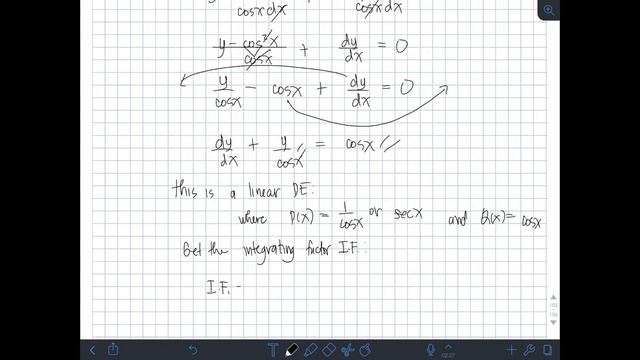 cosx dx cosx dx
y - cos²x / cosx + dy/dx = 0
y/cosx - cosx + dy/dx = 0
dy/dx + y/cosx = cosx //
this is a linear DE:
where P(x) = 1/cosx or secx and Q(x) = cosx
Get the integrating factor I.F.:
I.F. -